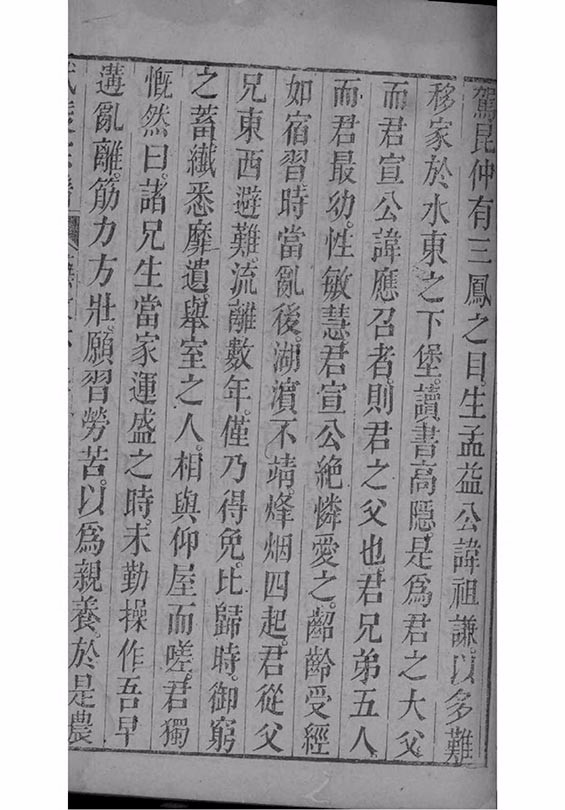 駕昆仲有三鳳之目生孟益公諱祖謙以多難
移家於水東之下堡讀書高隱是爲君之大父
而君宣公諱應召者則君之父也君兄弟五人
而君最幼性敏慧君宣公絶憐愛之齠齡受經
如宿習時當亂後湖濵不靖烽烟四起君從父
兄東西避難流離數年僅乃得免比歸時御窮
之蓄纎悉靡遺舉室之人相與仰屋而嗟君獨
慨然曰諸兄生當家運盛之時未勤操作吾早
遘亂離筋力方壯願習勞苦以爲親養於是農